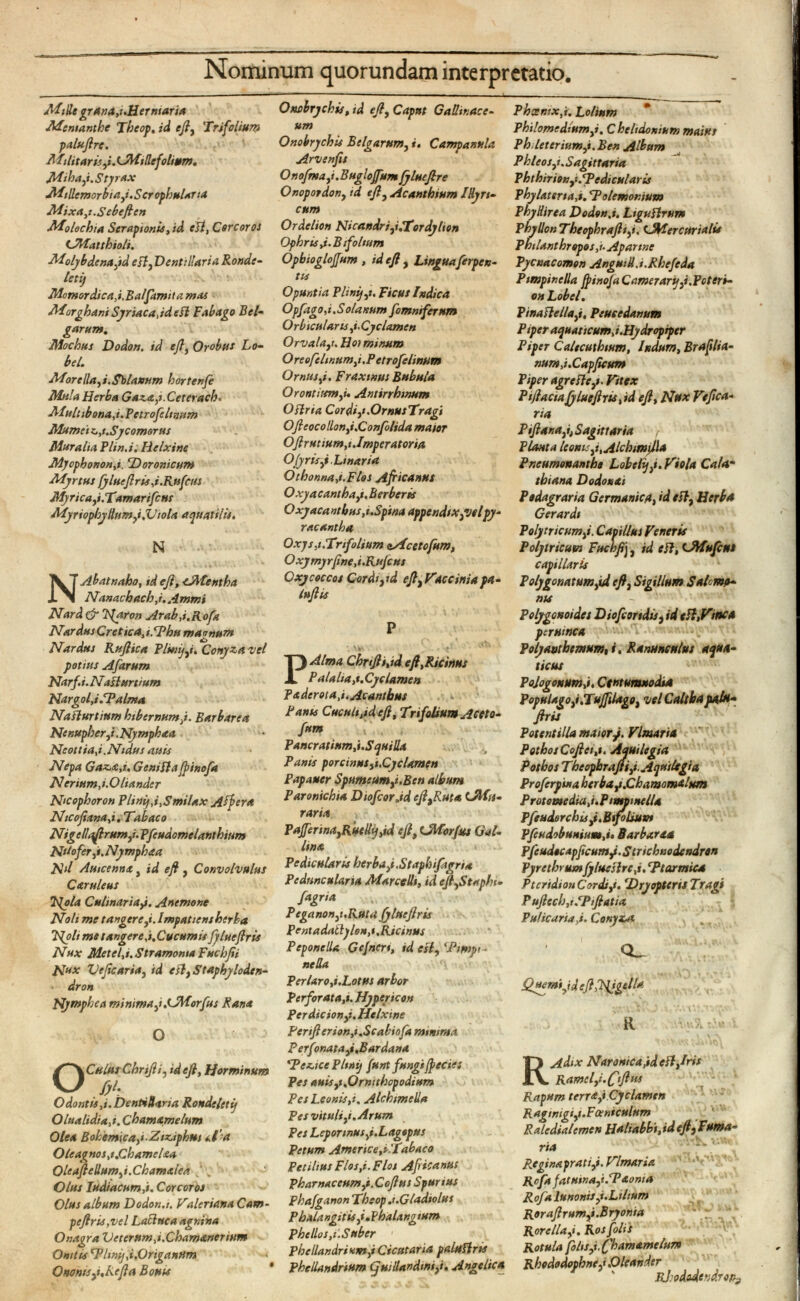 Nominum quorundam interpretatio.
Mille grana,i.Herniaria
Menianthe Theop. id est, Trifolium
palustre.
Militaris,i.Millefolium.
Miha,i.Styrax
Millemorbia,i.Scrophularia
Mixa,i.Sebesten
Molochia Serapionis, id est, Corcoros
Matthioli.
Molybdena,id est,Dentillaria Ronde-
letij
Momordica,i.Balsamita mas
Morghani Syriaca,id est Fabago Bel-
garum.
Mochus Dodon. id est, Orobus Lo-
bel.
Morella,i.Solanum hortense
Mula Herba Gazæ,i.Ceterach.
Multibona,i.Petroselinum
Mumeiz,i.Sycomorus
Muralia Plin.i. Helxine
Myophonon,i. Doronicum
Myrtus sylvestris,i.Ruscus
Myrica,i.Tamariscus
Myriophyllum,i.Viola aquatilis.
N
NAbatnaho, id est, Mentha
Nanachach,i.Ammi
Nard & Naron Arab,i.Rosa
Nardus Cretica,i.Phu magnum
Nardus Rustica Plinij,i. Conyza vel
potius Asarum
Narf.i.Nasturtium
Nargol,i.Palma
Nasturtium hibernum,i. Barbarea
Nenupher,i.Nymphæa
Neottia,i.Nidus auis
Nepa Gazæ,i. Genista spinosa
Nerium,i.Oliander
Nicophoron Plinij,i,Smilax Aspera
Nicosiana,i. Tabaco
Nigellastrum,i.Pseudomelanthium
Nilofer,i.Nymphæa
Nil Auicennæ, id est, Convolvulus
Cæruleus
Nola Culinaria,i. Anemone
Noli me tangere,i.Impatiens herba
Noli me tangere,i.Cucumis sylvestris
Nux Metel,i.Stramonia Fuchsii
Nux Vesicaria, id est,Staphyloden-
dron
Nymphea minima,i.Morsus Ranæ
O
OCulus Christi, id est, Horminum
syl.
Odontis,i.Dentillaria Rondeletij
Olualidia,i. Chamæmelum
Olea Bohemica,i.Ziziphus alba
Oleagnos,i.Chamelæa
Oleastellum,i.Chamalea
Olus Iudiacum,i. Corcoros
Olus album Dodon.i. Valeriana Cam-
pestris,vel Lactuca agnina
Onagra Veterum,i.Chamænerium
Onitis Plinij,i.Origanum
Ononis,i.Resta Bouis
Onobrychis, id est, Caput Gallinace-
um
Onobrychis Belgarum, i. Campanula
Arvensis
Onosma,i.Buglossum sylvestre
Onopordon, id est, Acanthium Illyri-
cum
Ordelion Nicandri,i.Tordylion
Ophris,i.Bifolium
Ophioglossum , id est , Lingua serpen-
tis
Opuntia Plinij,i. Ficus Indica
Opsago,i.Solanum somniferum
Orbicularis,i.Cyclamen
Orvala,i.Horminum
Oreoselinum,i.Petroselinum
Ornus,i. Fraxinus Bubula
Orontium,i. Antirrhinum
Ostria Cordi,i.Ornus Tragi
Osteocollon,i.Consolida maior
Ostrutium,i.Imperatoria
Osyris,i.Linaria
Othonna,i.Flos Africanus
Oxyacantha,i.Berberis
Oxyacanthus,i.Spina appendix,vel py-
racantha
Oxys,i.Trifolium Acetosum,
Oxymyrsine,i.Ruscus
Oxycoccos Cordi,id est,Vaccinia pa-
lustis
P
PAlma Christi,id est,Ricinus
Palalia,i.Cyclamen
Paderota,i.Acanthus
Panis Cuculi,id est, Trifolium Aceto-
sum
Pancratium,i.Squilla
Panis porcinus,i.Cyclamen
Papauer Spumeum,i.Ben album
Paronichia Dioscor.id est,Ruta Mu-
raria
Passerina,Ruellij,id est, Morsus Gal-
linæ
Pedicularis herba,i.Staphisagria
Peduncularia Marcelli, id est,Staphi-
sagria
Peganon,i.Ruta sylvestris
Pentadactylon,i.Ricinus
Peponella Gesneri, id est, Pimpi-
nella
Perlaro,i.Lotus arbor
Perforata,i.Hypericon
Perdicion,i.Helxine
Peristerion,i.Scabiosa minima
Personata,i.Bardana
Pezice Plinij sunt fungi species
Pes auis,i.Ornithopodium
Pes Leonis,i. Alchimella
Pes vituli,i.Arum
Pes Leporinus,i.Lagopus
Petum Americe,i.Tabaco
Petilius Flos,i. Flos Africanus
Pharnaceum,i.Costus Spurius
Phasganon Theop.i.Gladiolus
Phalangitis,i.Phalangium
Phellos,i.Suber
Phellandrium,i Cicutaria palustris
Phellandrium Guillandini,i. Angelica
Phœnix,i. Lolium
Philomedium,i. Chelidonium maius
Phileterium,i. Ben Album
Phleos,i.Sagittaria
Phthirion,i.Pedicularis
Phylateria,i. Polemonium
Phyllirea Dodon,i. Ligustrum
Phyllon Theophrasti,i. Mercurialis
Philanthropos,i. Aparine
Pycnacomon Anguill.i.Rheseda
Pimpinella spinosa Camerarij,i.Poteri-
on Lobel.
Pinastella,i. Peucedanum
Piper aquaticum,i.Hydropiper
Piper Calecuthium, Indum, Brasilia-
num,i.Capsicum
Piper agreste,i. Vitex
Pistacia sylvestris,id est, Nux Vesica-
ria
Pistana,i,Sagittaria
Planta leonis,i,Alchimilla
Pneumonanthe Lobelij,i.Viola Cala-
thiana Dodonæi
Podagraria Germanica, id est, Herba
Gerardi
Polytricum,i. Capillus Veneris
Polytricum Fuchsij, id est, Muscus
capillaris
Polygonatum,id est, Sigillum Salomo-
nis
Polygonoides Dioscoridis, id est,Vinca
peruinca
Polyanthemum, i. Ranunculus aqua-
ticus
Pologonum,i. Centumnodia
Populago,i.Tussilago, vel Caltha palu-
stris
Potentilla maior,i. Vlmaria
Pothos Costei,i. Aquilegia
Pothos Theophrasti,i.Aquilegia
Proserpina herba,i.Chamomælum
Protomedia,i.Pimpinella
Pseudorchis,i.Bifolium
Pseudobunium,i. Barbaræa
Pseudocapsicum,i.Strichnodendron
Pyrethrum sylvestre,i.Ptarmica
Pteridion Cordi,i. Dryopteris Tragi
Pustech,i.Pistatia
Pulicaria,i. Conyza
Q
Quemi,id est,Nigella
R
RAdix Naronica,id est,Iris
Ramel,i.Cistus
Rapum terræ,i Cyclamen
Raginigi,i.Fœniculum
Raledialemen Haliabbi,id est, Fuma-
ria
Regina prati,i. Vlmaria
Rosa fatuina,i.Pæonia
Rosa Iunonis,i.Lilium
Rorastrum,i.Bryonia
Rorella,i. Ros solis
Rotula solis,i.Chamæmelum
Rhododaphne,i.Oleander
Rhododendron,